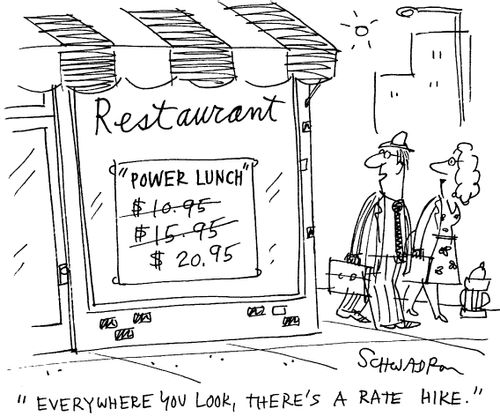 Restaurant
"POWER LUNCH"
$10.95
$15.95
$20.95
SCHWADRON
"EVERYWHERE YOU LOOK, THERE'S A RATE HIKE."